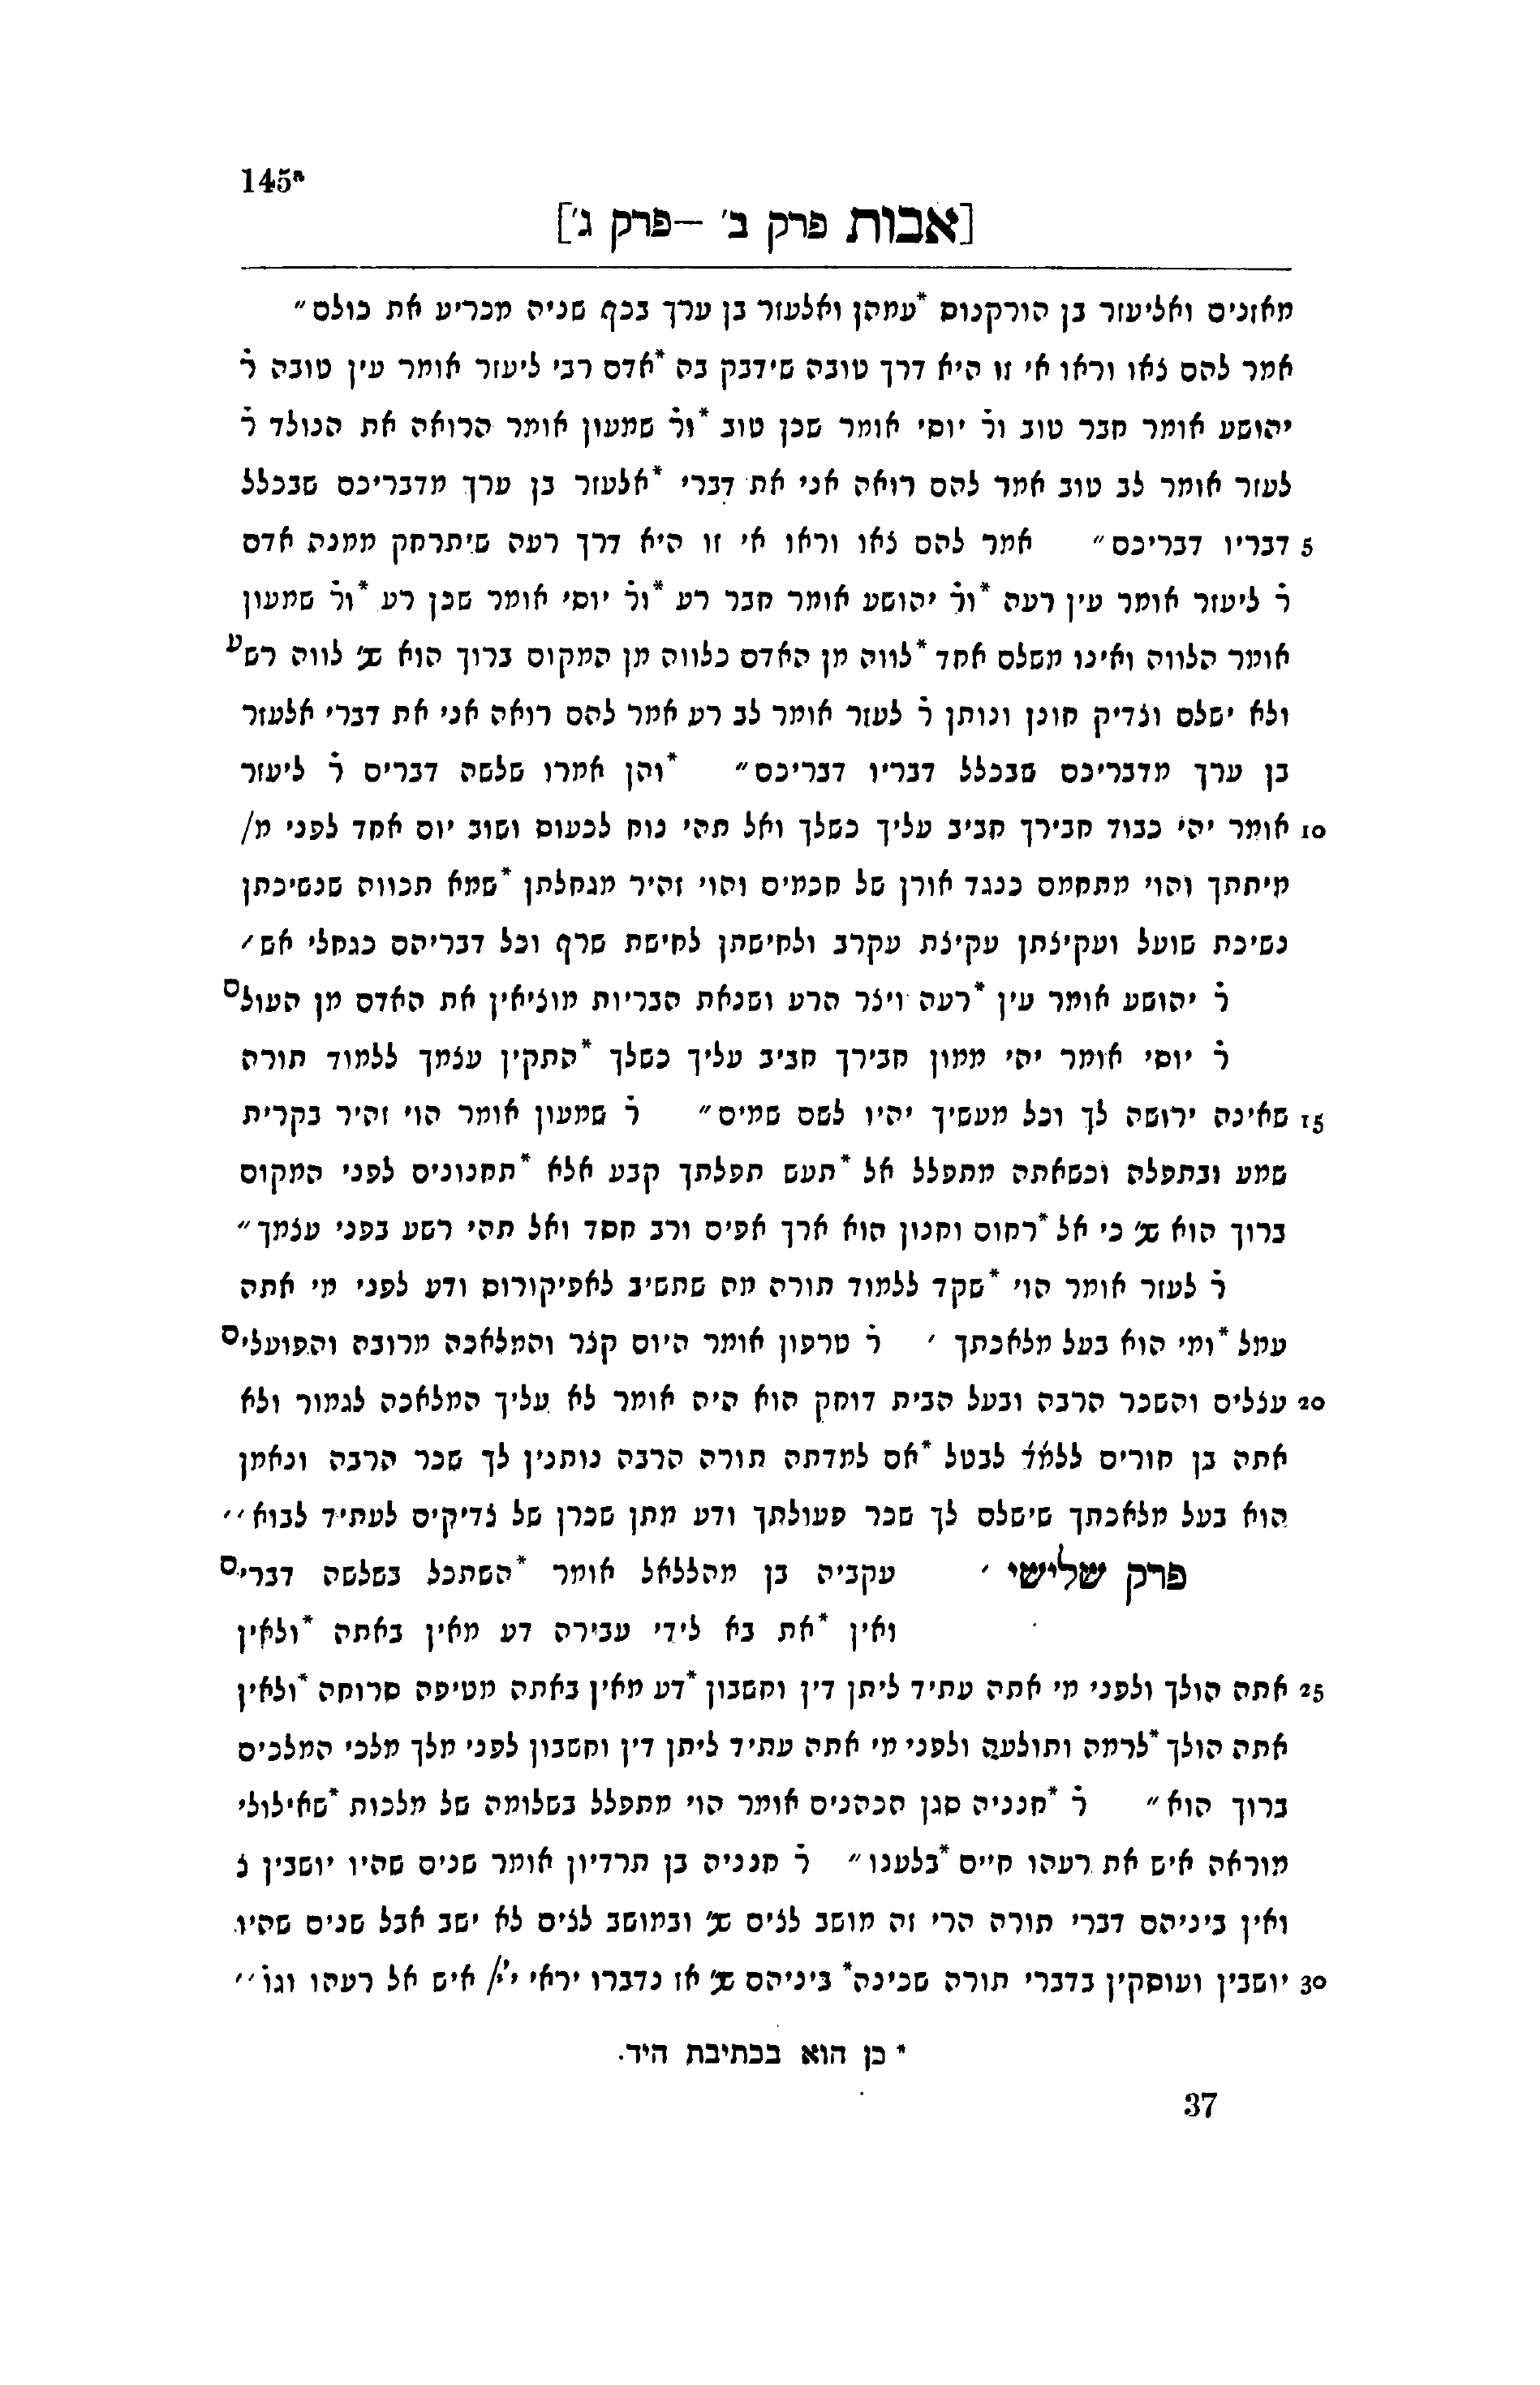 145ª
[אבות פרק ב' – פרק ג']
מאזנים ואליעזר בן הורקנוס *עמהן ואלעזר בן ערך בכף שניה מכריע את כולם״
אמר להם צאו וראו אי זו היא דרך טובה שידבק בה *אדם רבי ליעזר אומר עין טובה ר̇
יהושע אומר חבר טוב ור̇ יוסי אומר שכן טוב *ור̇ שמעון אומר הרואה את הנולד ר̇
לעזר אומר לב טוב אמר להם רואה אני את דברי *אלעזר בן ערך מדבריכם שבכלל
5 דבריו דבריכם״ אמר להם צאו וראו אי זו היא דרך רעה שיתרחק ממנה אדם
ר̇ ליעזר אומר עין רעה *ור̇ יהושע אומר חבר רע *ור̇ יוסי אומר שכן רע *ור̇ שמעון
אומר הלווה ואינו משלם אחד *לווה מן האדם כלווה מן המקום ברוך הוא שנ׳ לווה רשע
ולא ישלם וצדיק חונן ונותן ר̇ לעזר אומר לב רע אמר להם רואה אני את דברי אלעזר
בן ערך מדבריכם שבכלל דבריו דבריכם״ *והן אמרו שלשה דברים ר̇ ליעזר
10 אומר יהי כבוד חבירך חביב עליך כשלך ואל תהי נוח לכעוס ושוב יום אחד לפני מ/
מיתתך והוי מתחמם כנגד אורן של חכמים והוי זהיר מגחלתן *שמא תכווה שנשיכתן
נשיכת שועל ועקיצתן עקיצת עקרב ולחישתן לחישת שרף וכל דבריהם כגחלי אש׳
ר̇ יהושע אומר עין *רעה ויצר הרע ושנאת הבריות מוציאין את האדם מן העולם
ר̇ יוסי אומר יהי ממון חבירך חביב עליך כשלך *התקין עצמך ללמוד תורה
15 שאינה ירושה לך וכל מעשיך יהיו לשם שמים״ ר̇ שמעון אומר הוי זהיר בקרית
שמע ובתפלה וכשאתה מתפלל אל *תעש תפלתך קבע אלא *תחנונים לפני המקום
ברוך הוא שנ׳ כי אל *רחום וחנון הוא ארך אפים ורב חסד ואל תהי רשע בפני עצמך״
ר̇ לעזר אומר הוי *שקד ללמוד תורה מה שתשיב לאפיקורוס ודע לפני מי אתה
עמל *ומי הוא בעל מלאכתך ׳ ר̇ טרפון אומר היום קצר והמלאכה מרובה והפועלים
20 עצלים והשכר הרבה ובעל הבית דוחק הוא היה אומר לא עליך המלאכה לגמור ולא
אתה בן חורים לבטל *אם למדתה תורה הרבה נותנין לך שכר הרבה ונאמן
הוא בעל מלאכתך שישלם לך שכר פעולתך ודע מתן שכרן של צדיקים לעתיד לבוא׳׳
פרק שלישי ׳ עקביה בן מהללאל אומר *השתכל בשלשה דברים
ואין *את בא לידי עבירה דע מאין באתה *ולאין
25 אתה הולך ולפני מי אתה עתיד ליתן דין וחשבון *דע מאין באתה מטיפה סרוחה *ולאין
אתה הולך *לרמה ותולעה ולפני מי אתה עתיד ליתן דין וחשבון לפני מלך מלכי המלכים
ברוך הוא״ ר̇ *חנניה סגן הכהנים אומר הוי מתפלל בשלומה של מלכות *שאילולי
מוראה איש את רעהו חיים *בלענו״ ר̇ חנניה בן תרדיון אומר שנים שהיו יושבין צ
ואין ביניהם דברי תורה הרי זה מושב לצים שנ׳ ובמושב לצים לא ישב אבל שנים שהיו
30 יושבין ועוסקין בדברי תורה שכינה* ביניהם שנ׳ אז נדברו יראי י׳י/ איש אל רעהו וגו̇׳׳
* כן הוא בכתיבת היד.
37